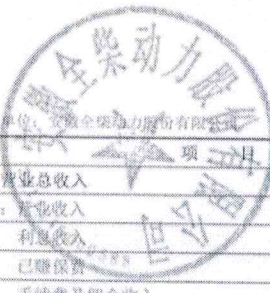 安徽全柴动力股份有限公司
单位：安徽全柴动力股份有限公司
项 目
营业总收入
：营业收入
利息收入
已赚保费
手续费及佣金收入